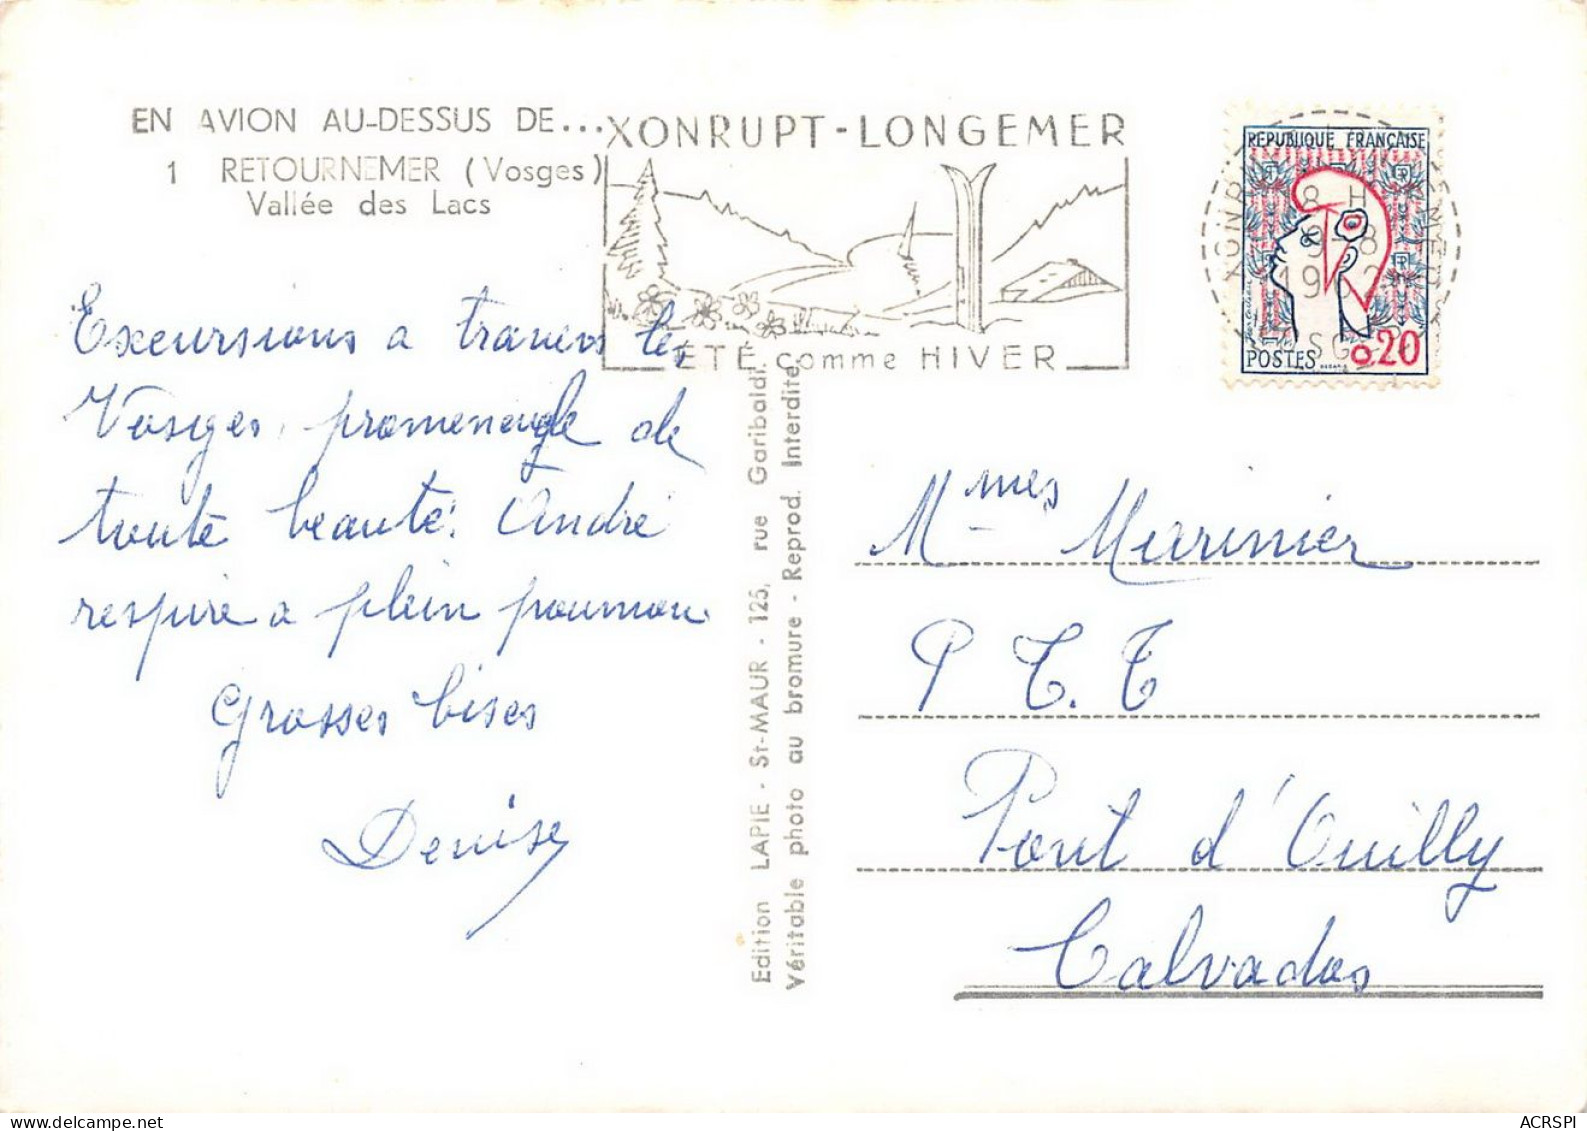 EN AVION AU-DESSUS DE...
1 RETOURNEMER (Vosges)
Vallée des Lacs
XONRUPT-LONGEMER
ÉTÉ comme HIVER
REPUBLIQUE FRANÇAISE
8 H
9-8
POSTES
0,20
Excursions a travers les
Vosges, promenade de
toute beauté. André
respire a plein poumon
Grosses bises
Denise
Edition LAPIE - St-MAUR - 125, rue Garibaldi.
Véritable photo au bromure - Reprod. Interdite.
Mmes Marinier
P T. T
Pont d'Ouilly
Calvados
delcampe.net
ACRSPI